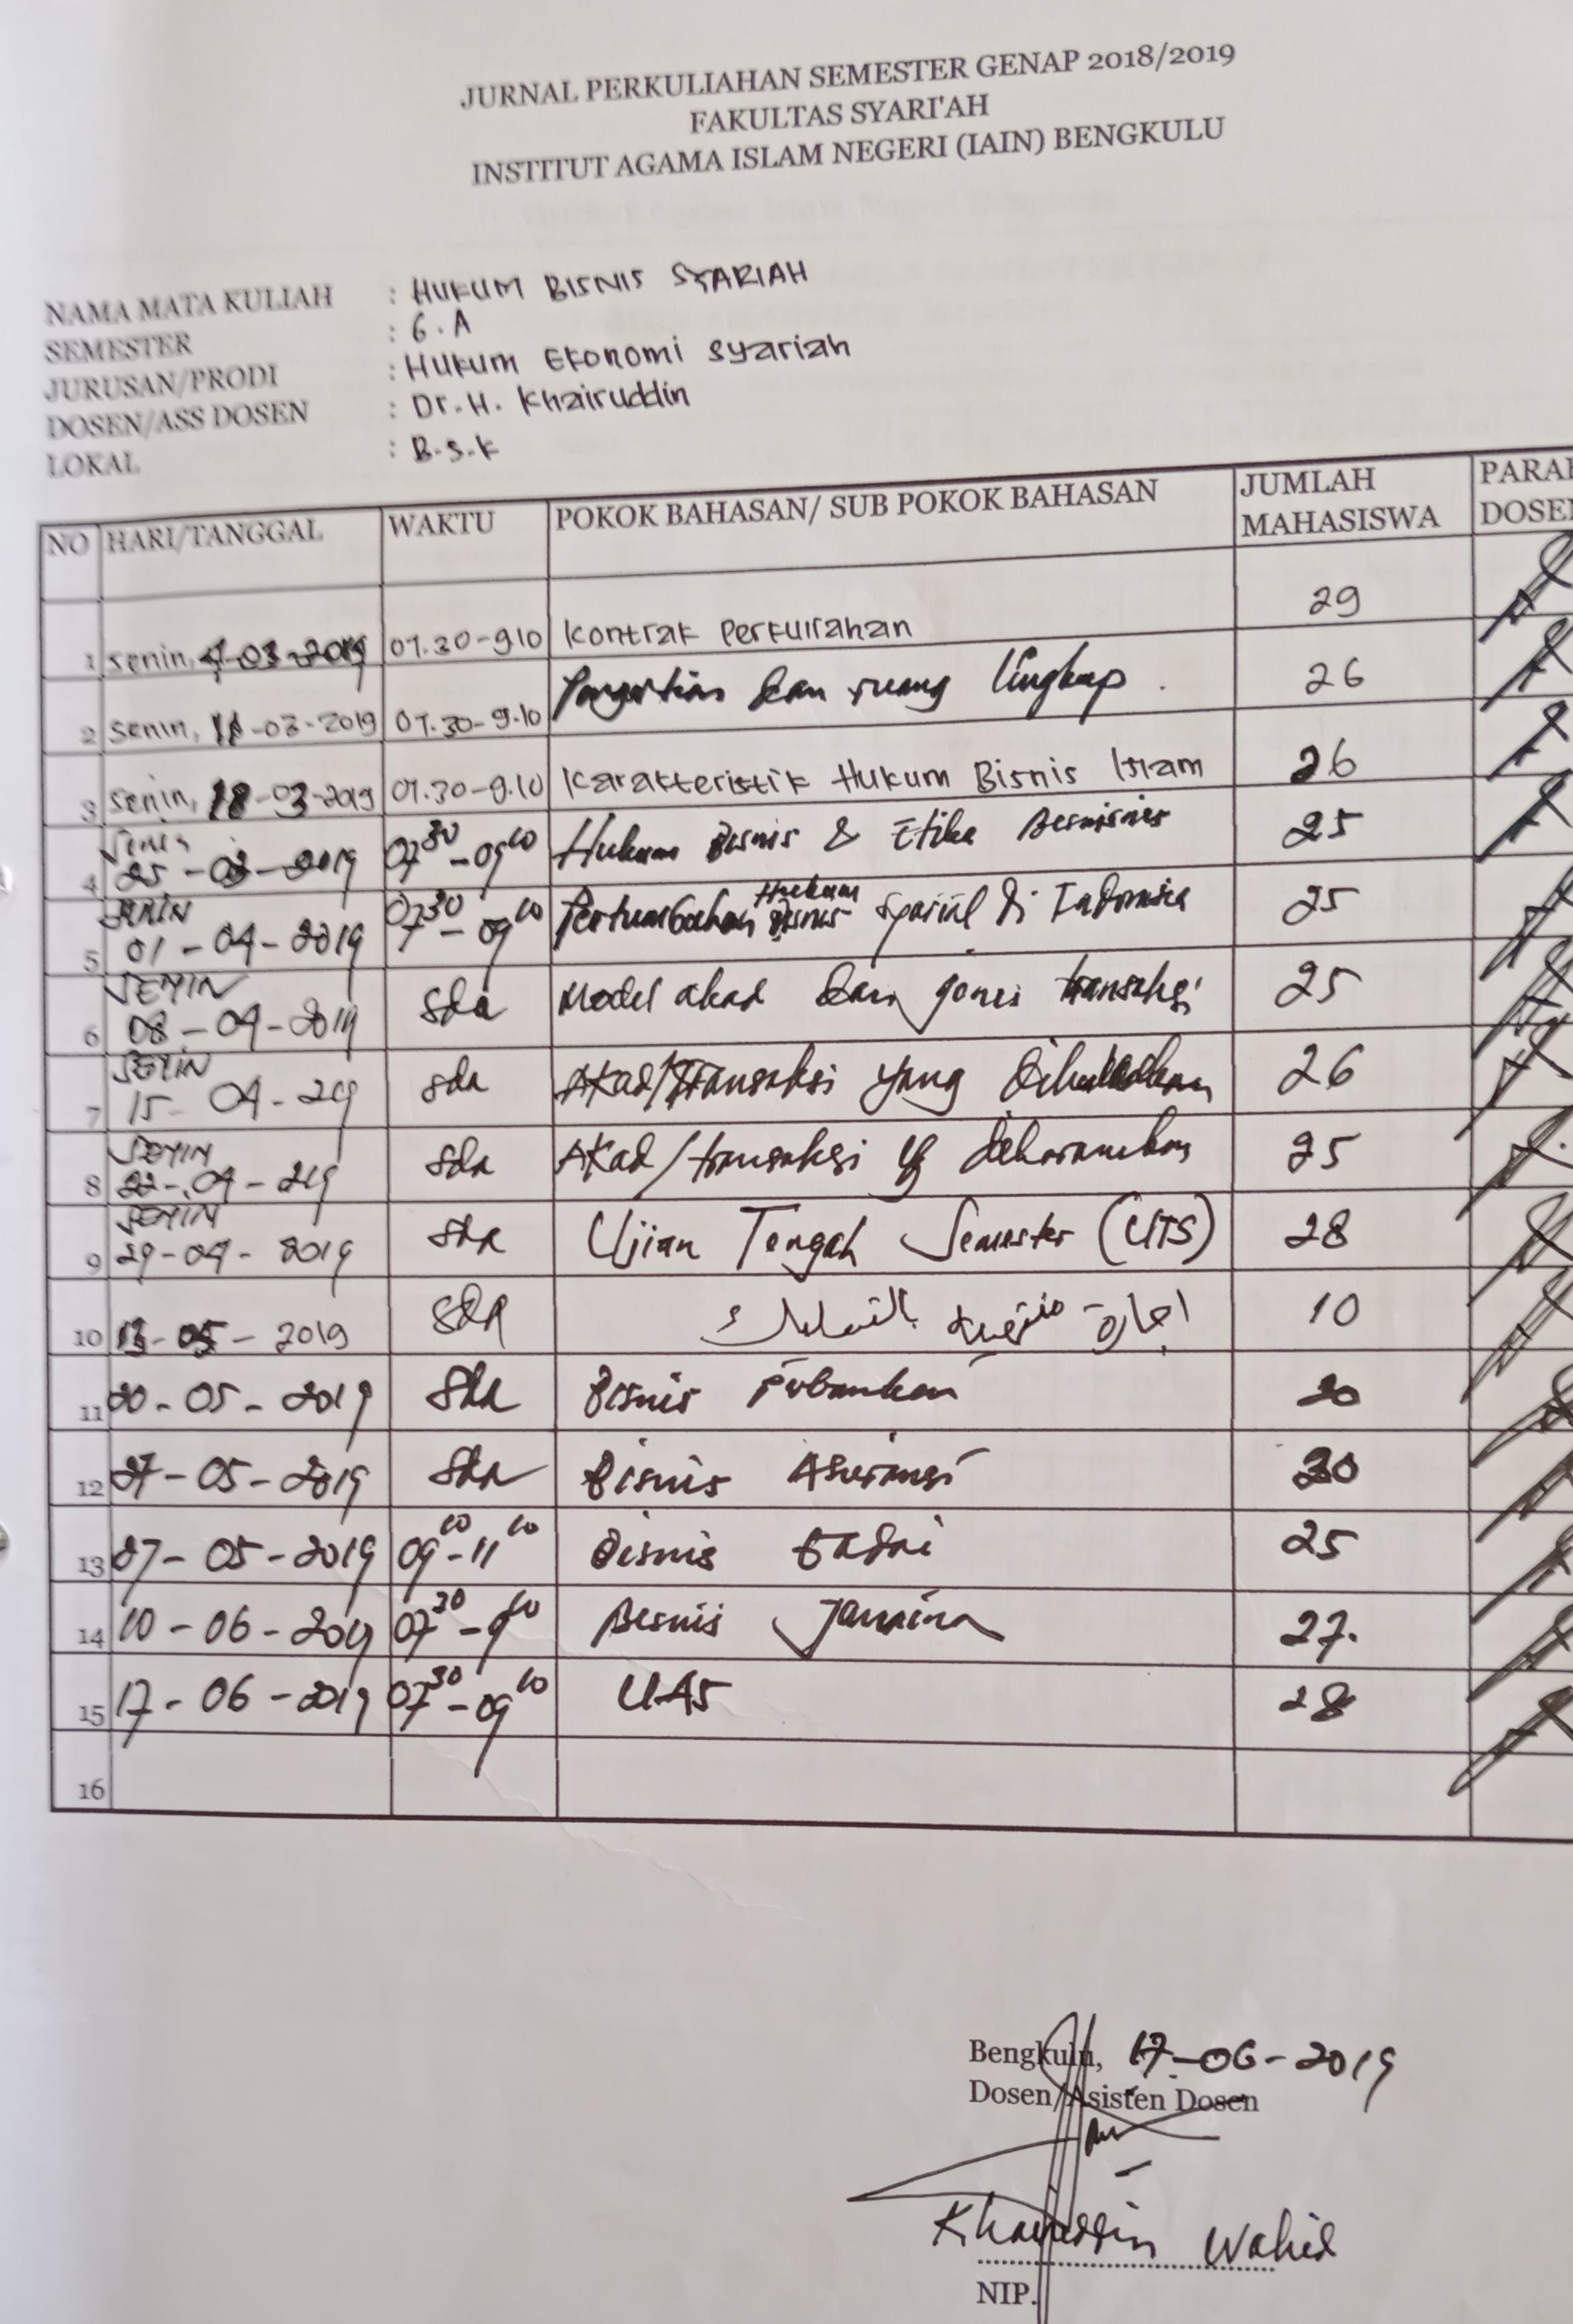 JURNAL PERKULIAHAN SEMESTER GENAP 2018/2019
FAKULTAS SYARI'AH
INSTITUT AGAMA ISLAM NEGERI (IAIN) BENGKULU
NAMA MATA KULIAH : HUKUM BISNIS SYARIAH
SEMESTER : 6.A
JURUSAN/PRODI : Hukum Ekonomi Syariah
DOSEN/ASS DOSEN : Dr. H. Khairuddin
LOKAL : B.S.K
NO HARI/TANGGAL WAKTU POKOK BAHASAN/ SUB POKOK BAHASAN JUMLAH MAHASISWA
1 Senin, 4-03-2019 07.30-9.10 Kontrak Perkuliahan 29
2 Senin, 11-03-2019 07.30-9.10 Pengertian dan ruang lingkup. 26
3 Senin, 18-03-2019 07.30-9.10 Karakteristik Hukum Bisnis Islam 26
4 Senin 25-03-2019 07 30-09 10 Hukum Bisnis & Etika Bisnis 25
5 SENIN 01-04-2019 07 30-09 10 Pertumbuhan Hukum Bisnis di Indonesia 25
6 SENIN 08-04-2019 sda Model akad dan jenis transaksi 25
7 SENIN 15-04-219 sda Akad/Transaksi yang dihalalkan 26
8 SENIN 22-04-219 sda Akad/transaksi yg diharamkan 25
9 SENIN 29-04-2019 sda Ujian Tengah Semester (UTS) 28
10 13-05-2019 sda اجارة منتهية بالتمليك 10
11 20-05-2019 sda Bisnis Perbankan 20
12 27-05-2019 sda Bisnis Asuransi 30
13 27-05-2019 09 10-11 10 Bisnis Gadai 25
14 10-06-2019 07 30-9 10 Bisnis 27.
15 17-06-2019 07 30-09 10 UAS 28
16
Bengkulu, 17-06-2019
Dosen/Asisten Dosen
Khairuddin Wahid
NIP.